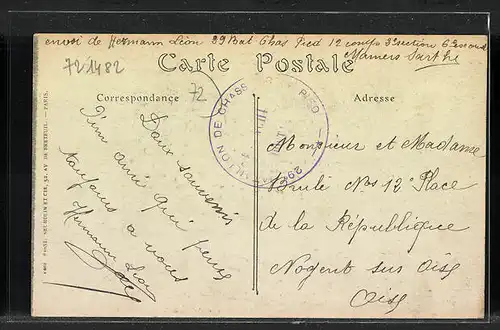 envoi de Hermann Léon 29 Bat Chas Pied 12 comp 3e section 6e escouade
Mamers Sarthe
721482
Carte Postale
72
Correspondance
Adresse
BATAILLON DE CHASSEURS A PIED
29e
Doux souvenir
d'un ami qui pense
toujours a vous
Hermann Léon
Monsieur et Madame
Brulé No 12 Place
de la République
Nogent sur Oise
Oise